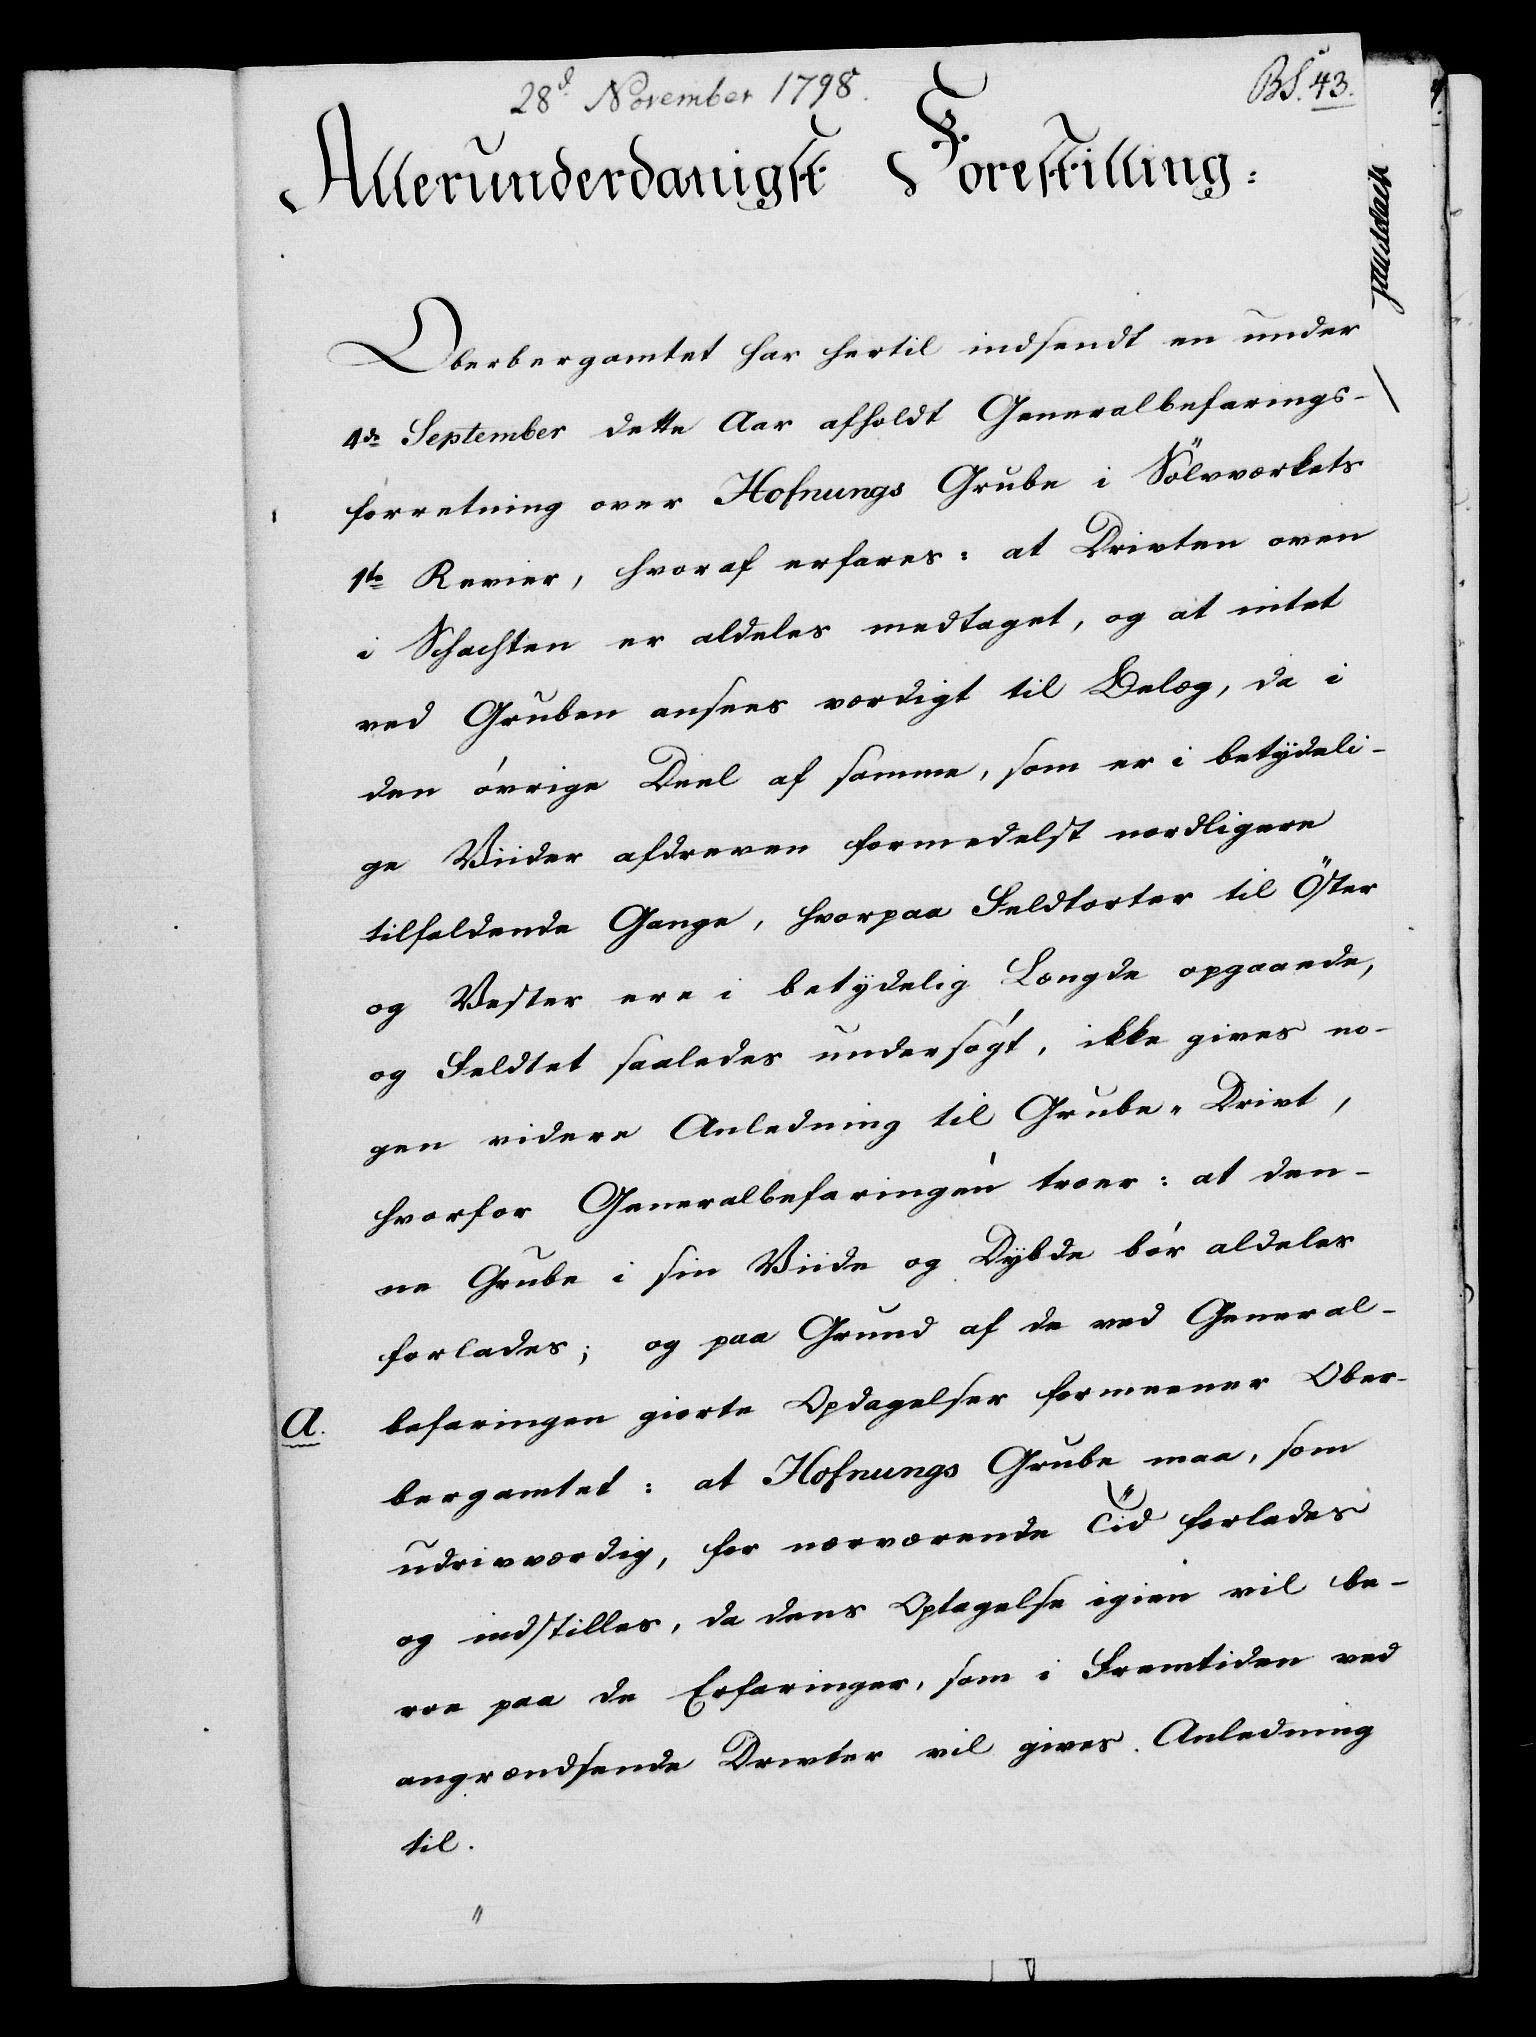 28d November 1798.
BS. 43.
Allerunderdanigst Forestilling:
Oberbergamtet har hertil indsendt en under
4de September dette Aar afholdt Generalbefarings-
forretning over Hofnungs Grube i Sölvværkets
1te Revier, hvoraf erfares: at Drivten oven
i Schachten er aldeles medtaget, og at intet
ved Gruben ansees værdigt til Belæg, da i
den övrige Deel af samme, som er i betydeli-
ge Viider afdreven formedelst nordligere
tilfaldende Gange, hvorpaa Feldtorter til Öster
og Vester ere i betydelig Længde opgaaede,
og Feldtet saaledes undersögt, ikke gives no-
gen videre Anledning til Grube-Drivt,
hvorfor Generalbefaringen troer: at den-
ne Grube i sin Viide og Dybde bör aldeles
forlades; og paa Grund af de ved General-
a. befaringen giorte Opdagelser formeener Ober-
bergamtet: at Hofnungs Grube maa, som
udrivværdig, for nærværende Tiid forlades
og indstilles, da dens Optagelse igien vil be-
roe paa de Erfaringer, som i Fremtiden ved
angrændsende Drivter vil gives Anledning
til.